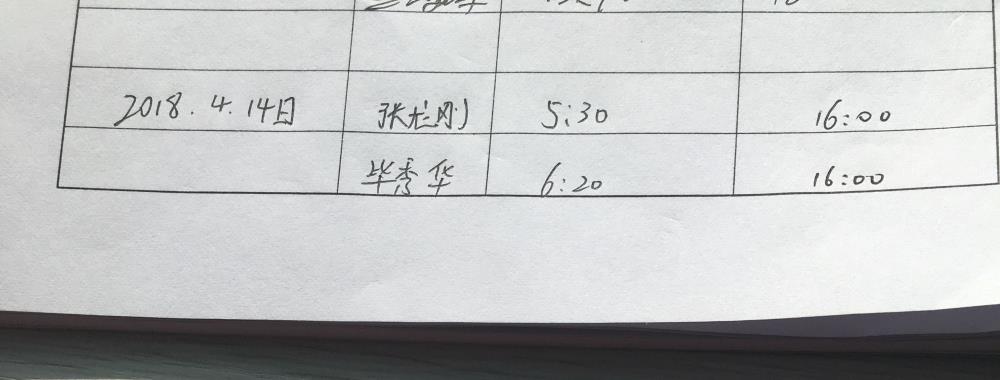 2018.4.14日 张龙刚 5:30 16:00
毕秀华 6:20 16:00